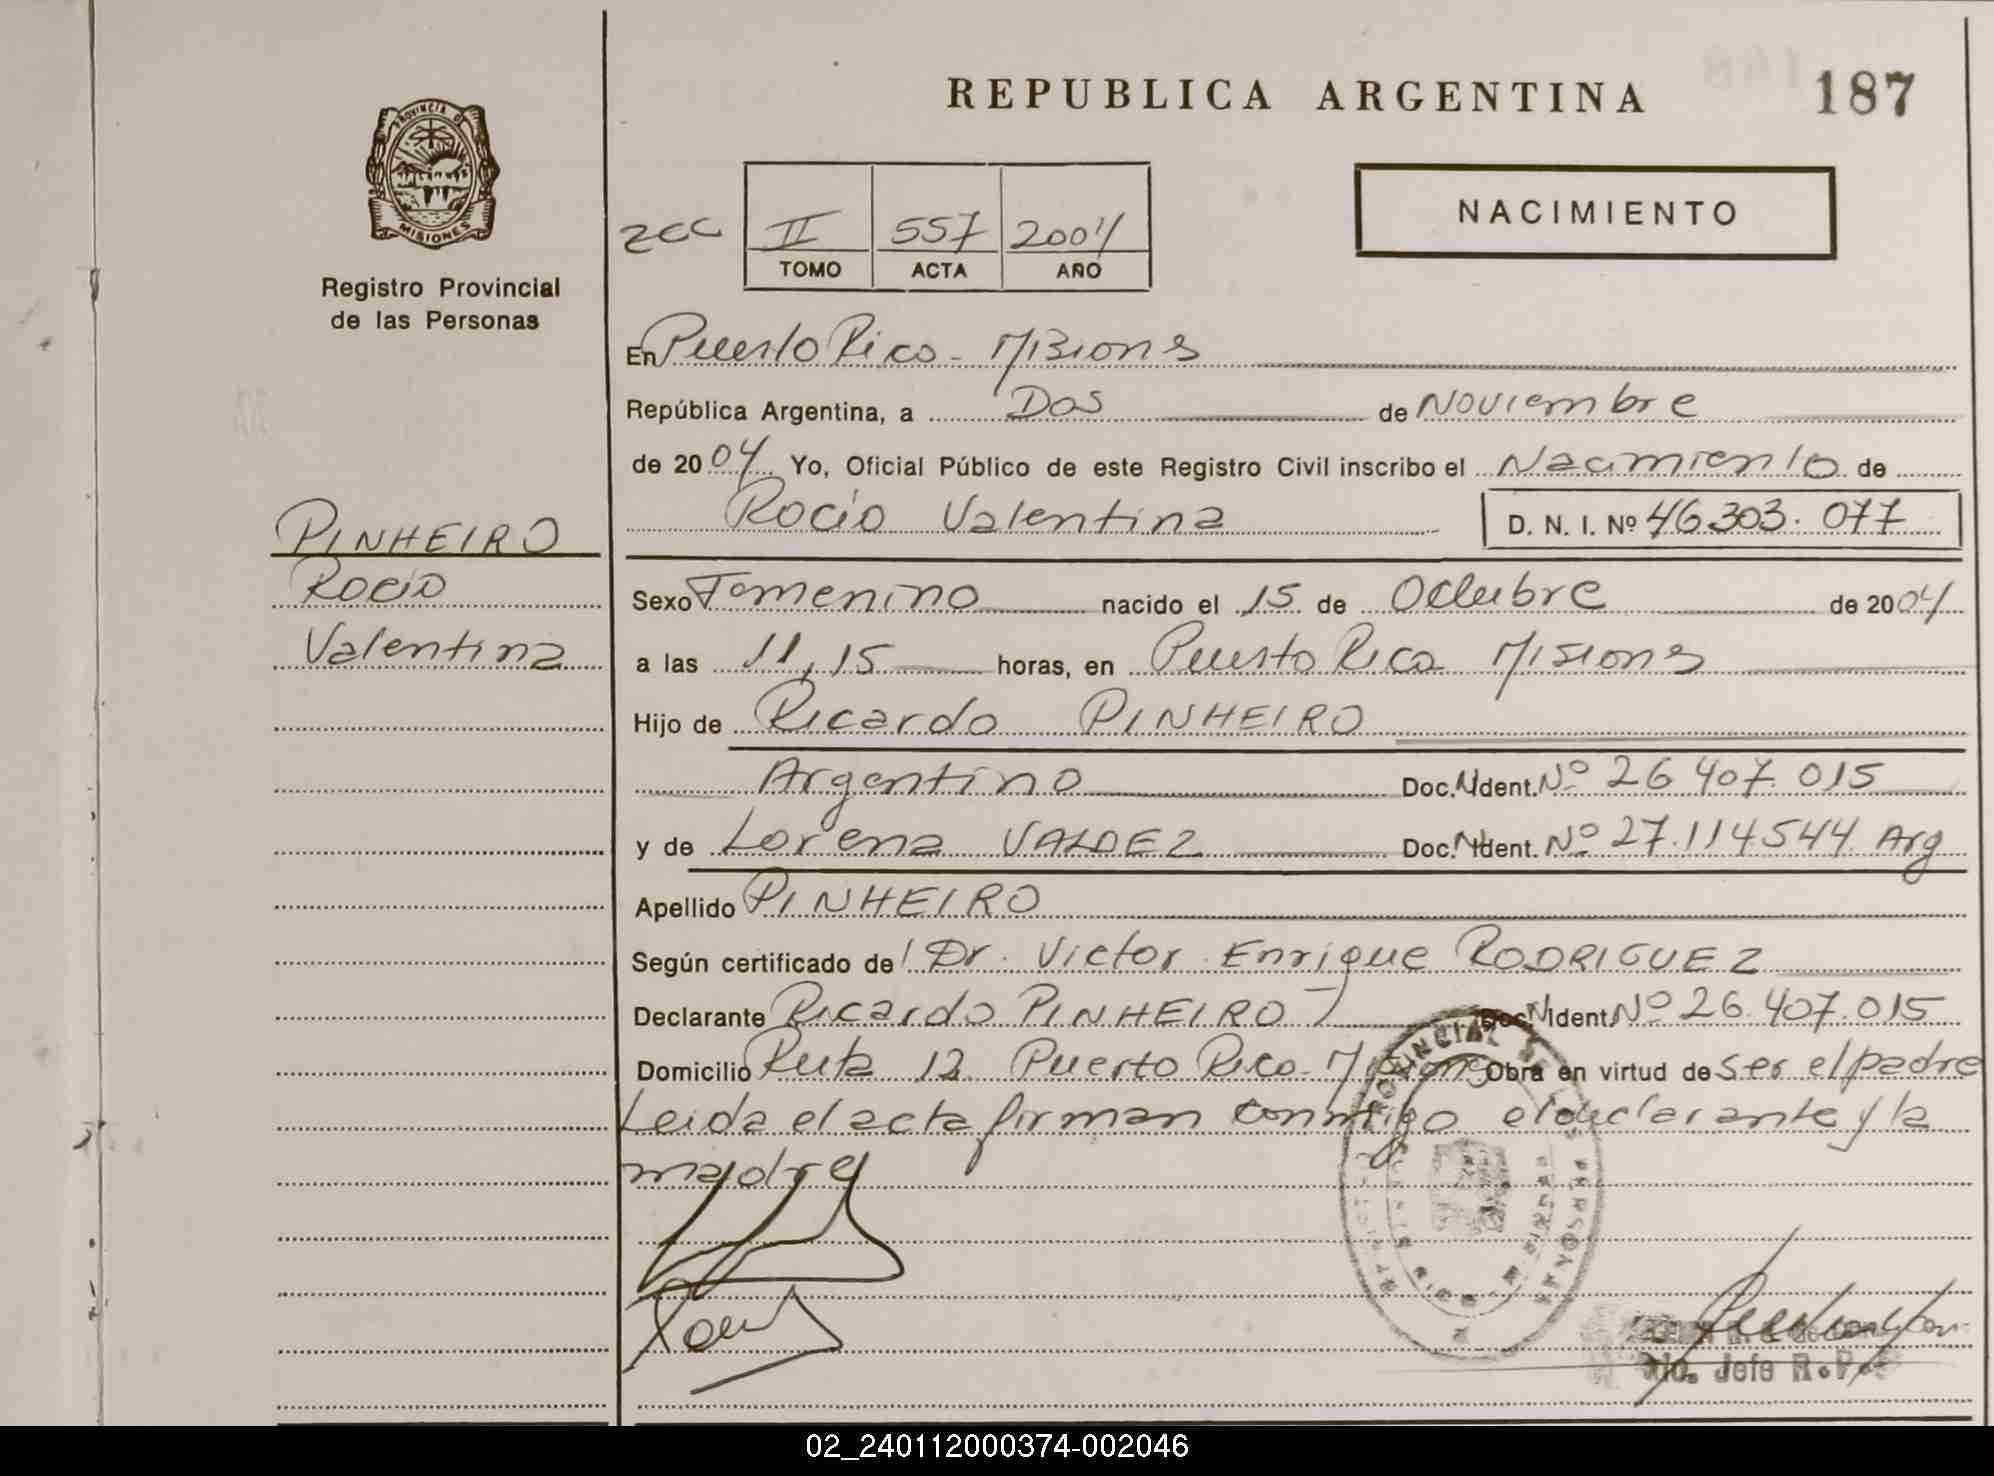 REPUBLICA ARGENTINA
187
PROVINCIA DE
MISIONES
Registro Provincial
de las Personas
NACIMIENTO
II 557 2004
TOMO ACTA AÑO
En Puerto Rico - Misiones
República Argentina, a Dos de Noviembre
de 2004 Yo, Oficial Público de este Registro Civil inscribo el Nacimiento de
Rocío Valentina D. N. I. Nº 46.303.077
PINHEIRO
Rocío
Valentina
Sexo Femenino nacido el 15 de Octubre de 2004
a las 11,15 horas, en Puerto Rico Misiones
Hijo de Ricardo PINHEIRO
Argentino Doc. N Ident. Nº 26.407.015
y de Lorena VALDEZ Doc. N Ident. Nº 27.114.544 Arg
Apellido PINHEIRO
Según certificado del Dr. Victor Enrique RODRIGUEZ
Declarante Ricardo PINHEIRO Doc. N Ident. Nº 26.407.015
Domicilio Ruta 12 Puerto Rico - Misiones Obra en virtud de ser el padre
Leida el acta firman conmigo el declarante y la
madre
PROVINCIAL DE
Jefe R.P.
02_240112000374-002046